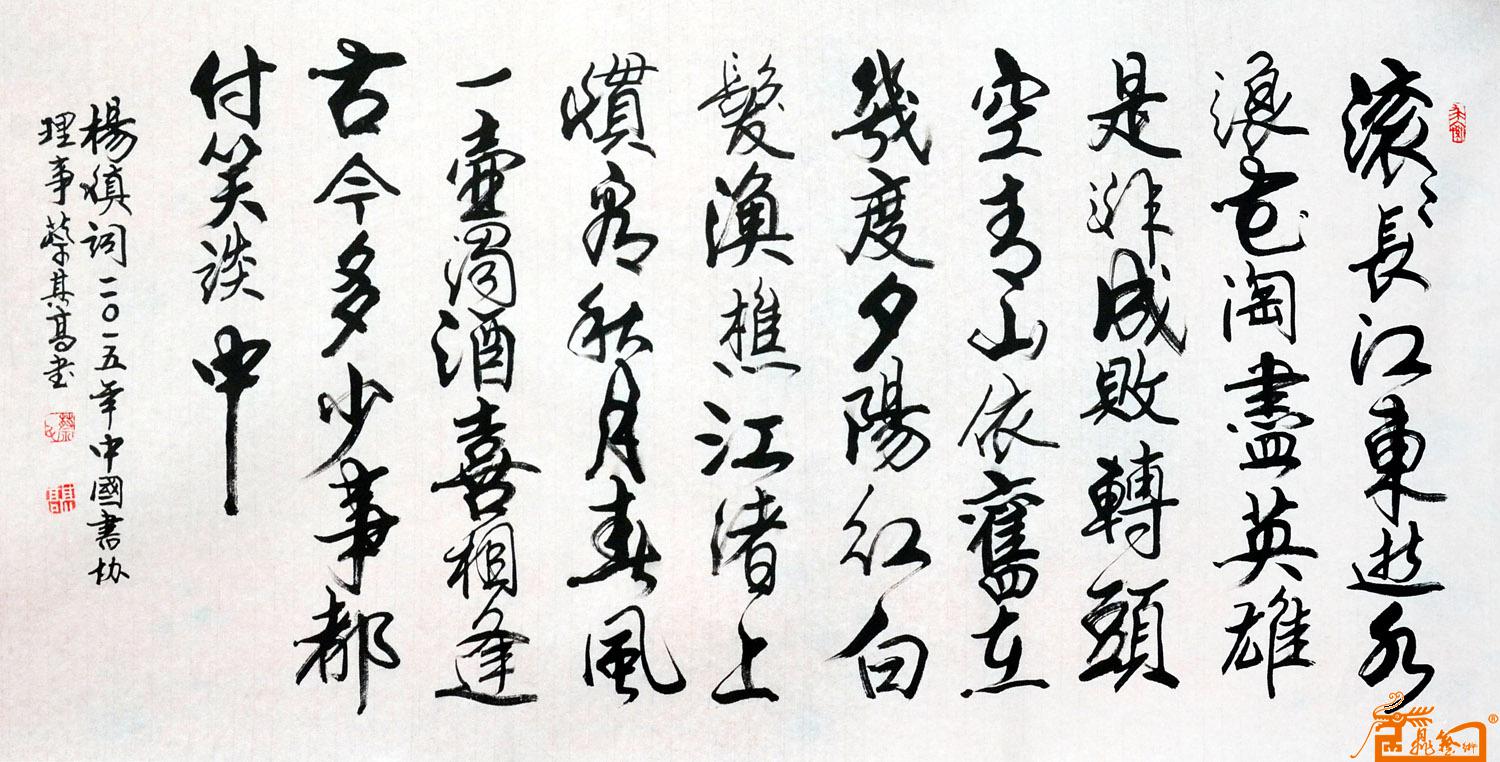 滚〻長江東逝水
浪花淘盡英雄
是非成敗轉頭
空青山依舊在
幾度夕陽紅白
髮漁樵江渚上
慣看秋月春風
一壺濁酒喜相逢
古今多少事都
付笑談中
楊慎詞二〇一五年中國書协
理事蔡其高书